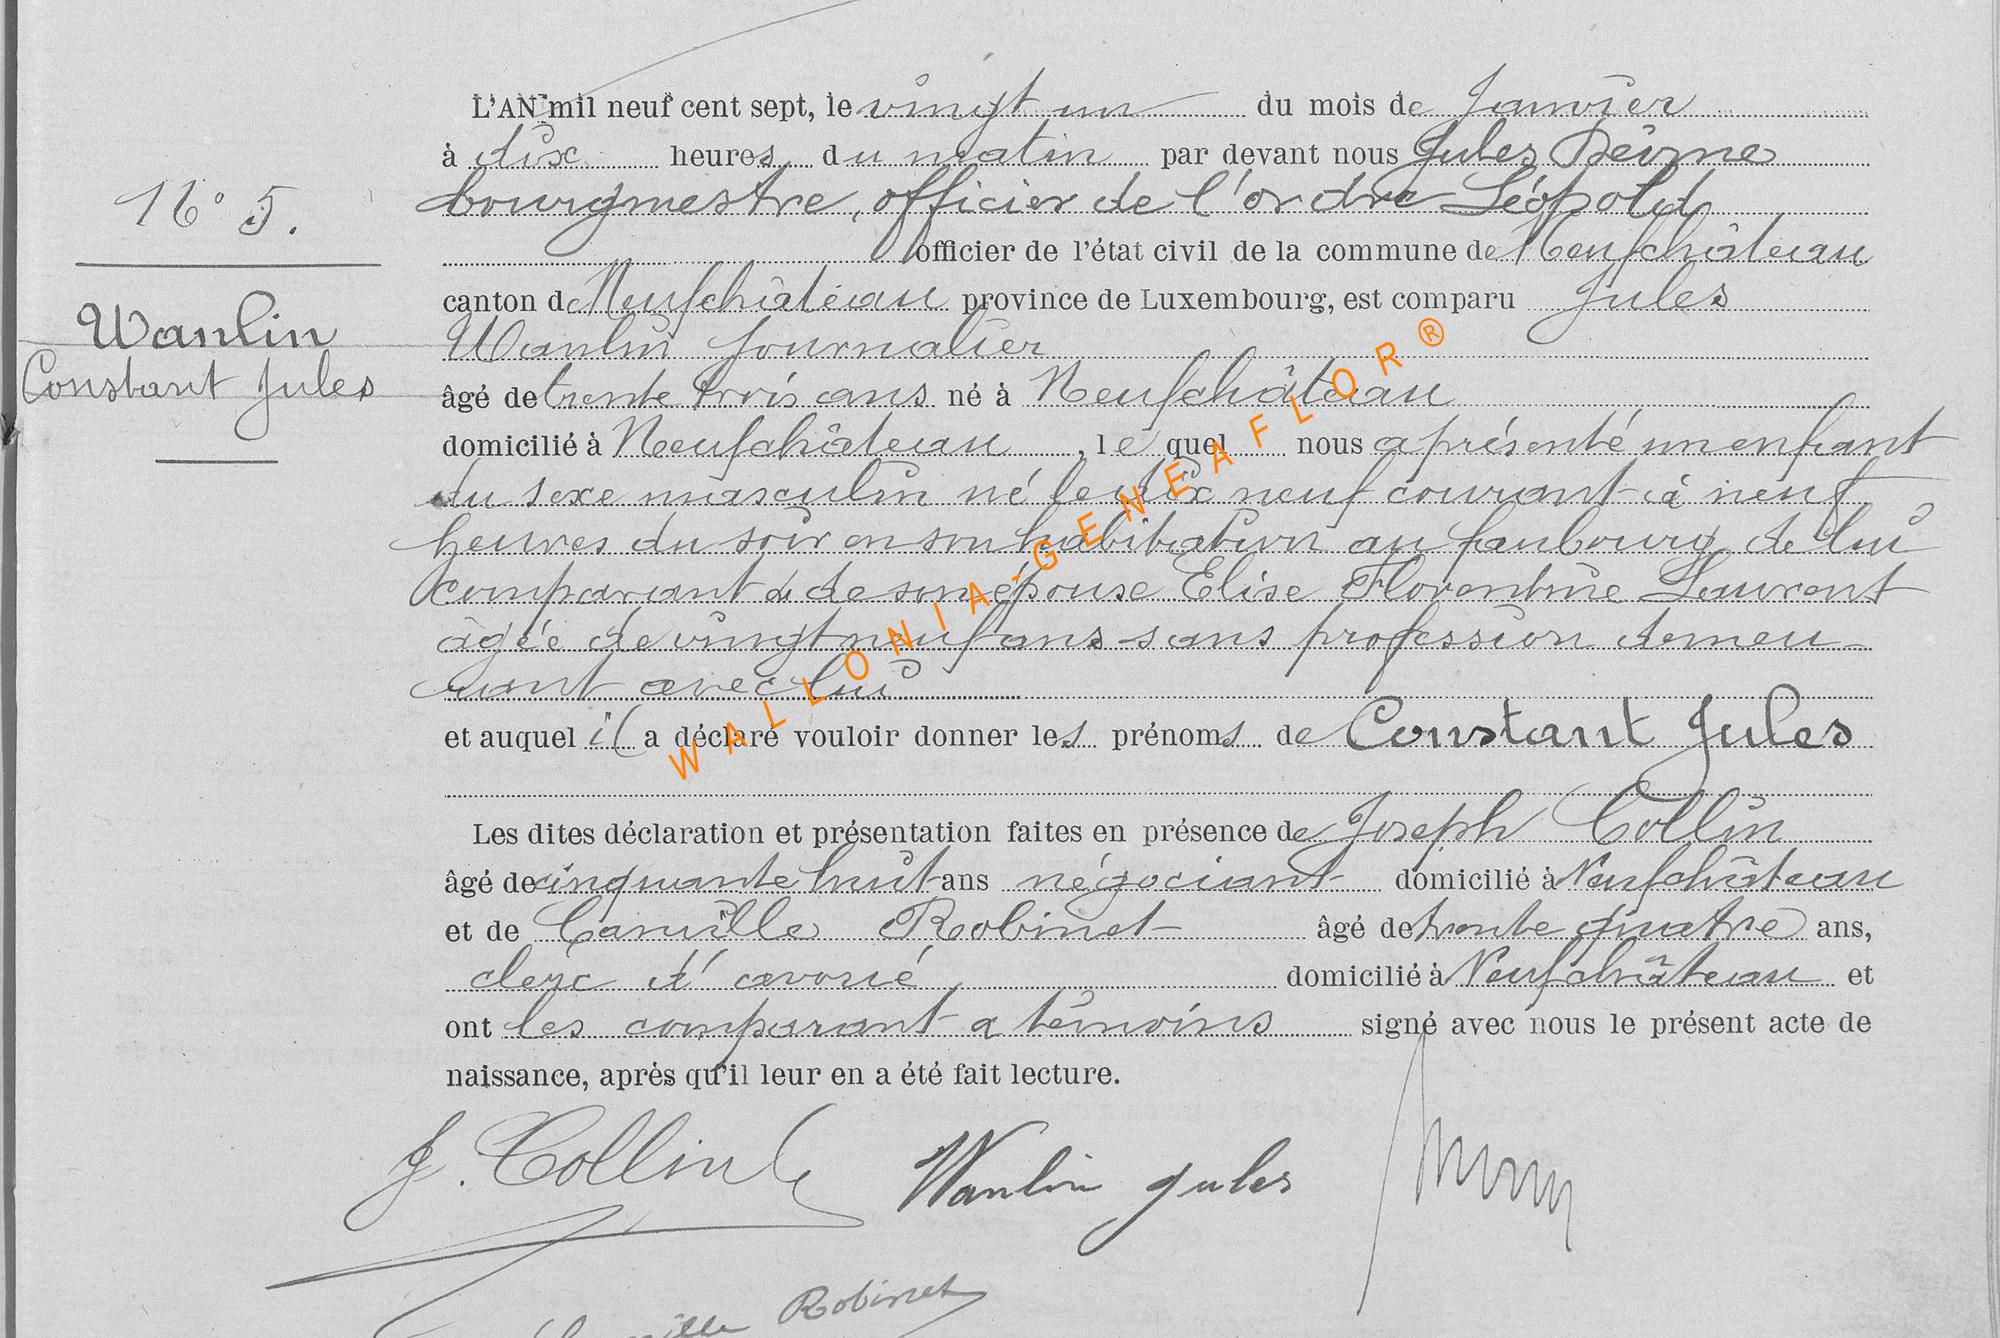 L'AN mil neuf cent sept, le vingt un du mois de Janvier
à dix heures du matin par devant nous Jules
bourgmestre, officier de l'ordre Léopold
officier de l'état civil de la commune de Neufchâteau
canton de Neufchâteau province de Luxembourg, est comparu Jules
Wanlin journalier
âgé de trente trois ans né à Neufchâteau
domicilié à Neufchâteau, le quel nous a présenté un enfant
du sexe masculin né le dix neuf courant à neuf
heures du soir en son habitation au faubourg de lui
comparant & de son épouse Elise Florentine Laurent
âgée de vingt neuf ans sans profession demeu-
rant avec lui
et auquel il a déclaré vouloir donner les prénoms de Constant Jules
Les dites déclaration et présentation faites en présence de Joseph Collin
âgé de cinquante huit ans négociant domicilié à Neufchâteau
et de Camille Robinet âgé de trente quatre ans,
clerc d'avoué domicilié à Neufchâteau et
ont les comparant & témoins signé avec nous le présent acte de
naissance, après qu'il leur en a été fait lecture.
J. Collin Wanlin Jules
Camille Robinet
N° 5.
Wanlin
Constant Jules
WALLONIA-GENEAFLOR®